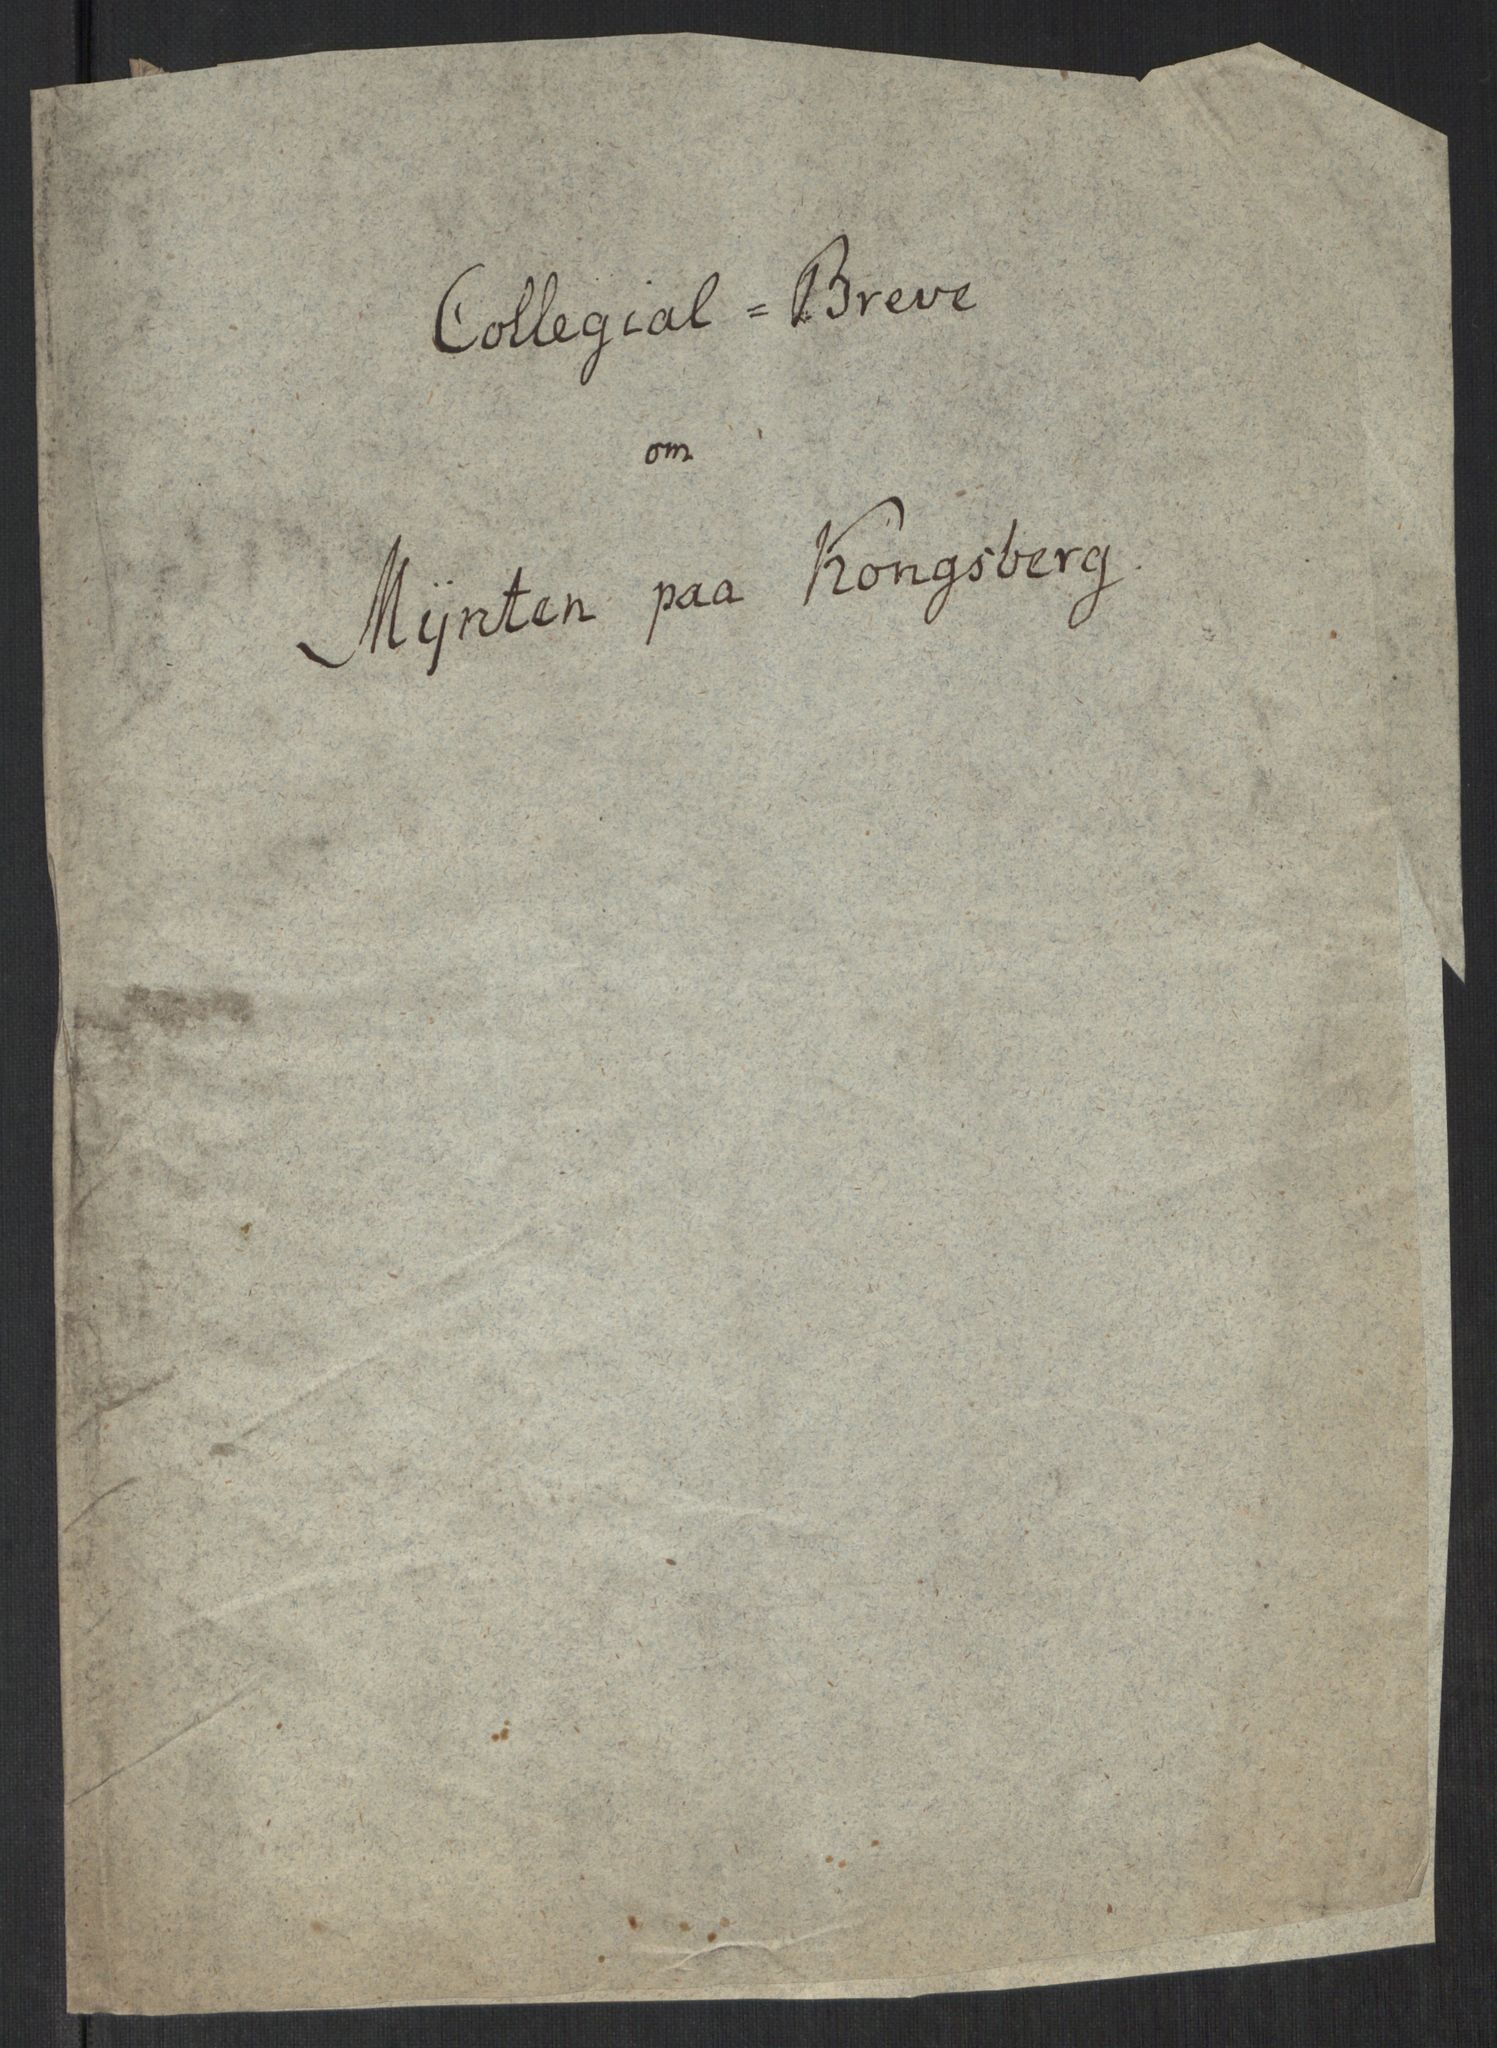 Collegial = Breve
om
Mÿnten paa Kongsberg.